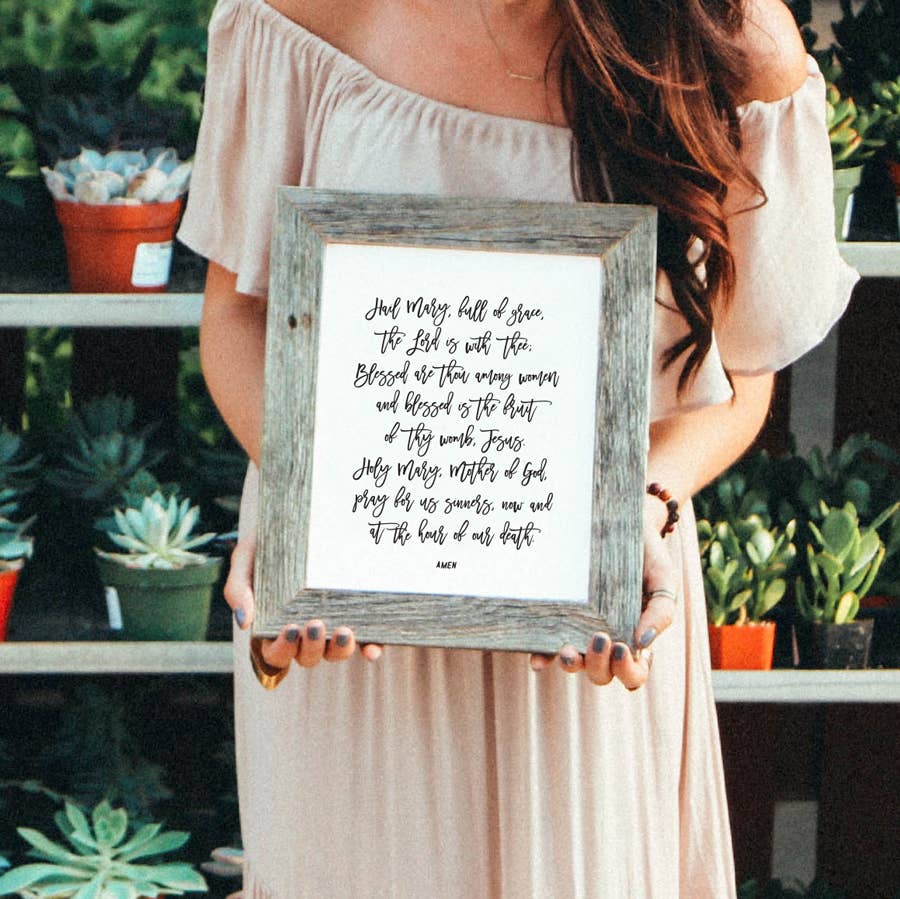 Hail Mary, full of grace,
the Lord is with thee;
Blessed are thou among women
and blessed is the fruit
of thy womb, Jesus.
Holy Mary, Mother of God,
pray for us sinners, now and
at the hour of our death.
AMEN